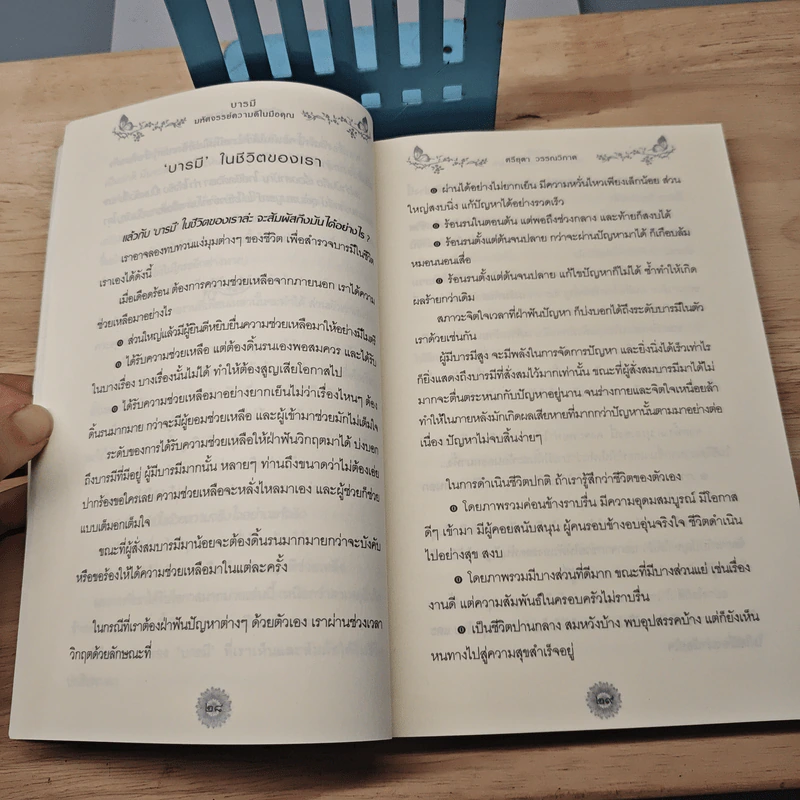 บารมี
มหัศจรรย์ความดีในมือคุณ
'บารมี' ในชีวิตของเรา
แล้วกับ 'บารมี' ในชีวิตของเราล่ะ จะสัมผัสถึงมันได้อย่างไร ?
เราอาจลองทบทวนแง่มุมต่างๆ ของชีวิต เพื่อสำรวจบารมีในชีวิต
เราเองได้ดังนี้
เมื่อเดือดร้อน ต้องการความช่วยเหลือจากภายนอก เราได้ความ
ช่วยเหลือมาอย่างไร
๏ ส่วนใหญ่แล้วมีผู้ยินดีหยิบยื่นความช่วยเหลือมาให้อย่างมีไมตรี
๏ ได้รับความช่วยเหลือ แต่ต้องดิ้นรนเองพอสมควร และได้รับ
ในบางเรื่อง บางเรื่องนั้นไม่ได้ ทำให้ต้องสูญเสียโอกาสไป
๏ ได้รับความช่วยเหลือมาอย่างยากเย็นไม่ว่าเรื่องไหนๆ ต้อง
ดิ้นรนมากมาย กว่าจะมีผู้ยอมช่วยเหลือ และผู้เข้ามาช่วยมักไม่เต็มใจ
ระดับของการได้รับความช่วยเหลือให้ฝ่าพ้นวิกฤตมาได้ บ่งบอก
ถึงบารมีที่มีอยู่ ผู้มีบารมีมากนั้น หลายๆ ท่านถึงขนาดว่าไม่ต้องเอ่ย
ปากร้องขอใครเลย ความช่วยเหลือจะหลั่งไหลมาเอง และผู้ช่วยก็ช่วย
แบบเต็มอกเต็มใจ
ขณะที่ผู้สั่งสมบารมีมาน้อยจะต้องดิ้นรนมากมายกว่าจะบังคับ
หรือขอร้องให้ได้ความช่วยเหลือมาในแต่ละครั้ง
ในกรณีที่เราต้องฝ่าพ้นปัญหาต่างๆ ด้วยตัวเอง เราผ่านช่วงเวลา
วิกฤตด้วยลักษณะที่
๒๘
ศรีฤดา วรรณวิภาศ
๏ ผ่านได้อย่างไม่ยากเย็น มีความหวั่นไหวเพียงเล็กน้อย ส่วน
ใหญ่สงบนิ่ง แก้ปัญหาได้อย่างรวดเร็ว
๏ ร้อนรนในตอนต้น แต่พอถึงช่วงกลาง และท้ายก็สงบได้
๏ ร้อนรนตั้งแต่ต้นจนปลาย กว่าจะผ่านปัญหามาได้ ก็เกือบล้ม
หมอนนอนเสื่อ
๏ ร้อนรนตั้งแต่ต้นจนปลาย แก้ไขปัญหาก็ไม่ได้ ซ้ำทำให้เกิด
ผลร้ายกว่าเดิม
สภาวะจิตใจเวลาที่ฝ่าพ้นปัญหา ก็บ่งบอกได้ถึงระดับบารมีในตัว
เราด้วยเช่นกัน
ผู้มีบารมีสูง จะมีพลังในการจัดการปัญหา และยิ่งนิ่งได้เร็วเท่าไร
ก็ยิ่งแสดงถึงบารมีที่สั่งสมไว้มากเท่านั้น ขณะที่ผู้สั่งสมบารมีมาได้ไม่
มากจะตื่นตระหนกกับปัญหาอยู่นาน จนร่างกายและจิตใจเหนื่อยล้า
ทำให้ในภายหลังมักเกิดผลเสียหายที่มากกว่าปัญหานั้นตามมาอย่างต่อ
เนื่อง ปัญหาไม่จบสิ้นง่ายๆ
ในการดำเนินชีวิตปกติ ถ้าเรารู้สึกว่าชีวิตของตัวเอง
๏ โดยภาพรวมค่อนข้างราบรื่น มีความอุดมสมบูรณ์ มีโอกาส
ดีๆ เข้ามา มีผู้คอยสนับสนุน ผู้คนรอบข้างอบอุ่นจริงใจ ชีวิตดำเนิน
ไปอย่างสุข สงบ
๏ โดยภาพรวมมีบางส่วนที่ดีมาก ขณะที่มีบางส่วนแย่ เช่นเรื่อง
งานดี แต่ความสัมพันธ์ในครอบครัวไม่ราบรื่น
๏ เป็นชีวิตปานกลาง สมหวังบ้าง พบอุปสรรคบ้าง แต่ก็ยังเห็น
หนทางไปสู่ความสุขสำเร็จอยู่
๒๙